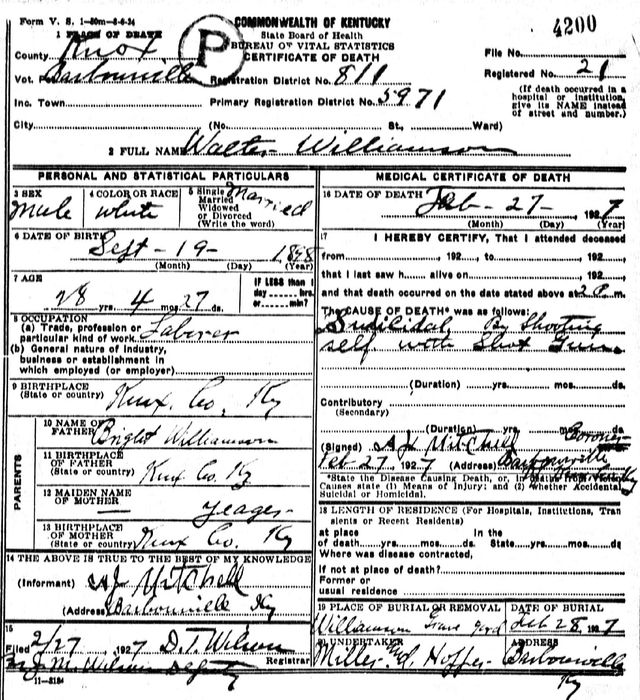 Form V. S. 1-50m-8-6-24
COMMONWEALTH OF KENTUCKY
4200
1 PLACE OF DEATH
State Board of Health
BUREAU OF VITAL STATISTICS
CERTIFICATE OF DEATH
P
County Knox
File No.
Vot. P Barbourville
Registration District No. 811
Registered No. 21
Inc. Town
Primary Registration District No. 5971
(If death occurred in a hospital or institution, give its NAME instead of street and number.)
City (No. St., Ward)
2 FULL NAME Walter Williamson
PERSONAL AND STATISTICAL PARTICULARS
3 SEX Male
4 COLOR OR RACE white
5 Single Married Widowed or Divorced (Write the word) Married
6 DATE OF BIRTH Sept - 19 - 1898
(Month) (Day) (Year)
7 AGE
28 yrs. 4 mos. 27 ds.
IF LESS than 1 day hrs. or min?
8 OCCUPATION
(a) Trade, profession or particular kind of work Laborer
(b) General nature of industry, business or establishment in which employed (or employer)
9 BIRTHPLACE (State or country) Knox. Co, Ky
PARENTS
10 NAME OF FATHER Bright Williamson
11 BIRTHPLACE OF FATHER (State or country) Knox Co. Ky
12 MAIDEN NAME OF MOTHER — Yeager
13 BIRTHPLACE OF MOTHER (State or country) Knox Co. Ky
14 THE ABOVE IS TRUE TO THE BEST OF MY KNOWLEDGE
(Informant) Mitchell
(Address) Barbourville Ky
15
Filed 2/27 1927 D. T. Wilson
Registrar
J. M. Wilson Deputy
11-3184
MEDICAL CERTIFICATE OF DEATH
16 DATE OF DEATH Feb - 27 - 1927
(Month) (Day) (Year)
17 I HEREBY CERTIFY, That I attended deceased
from 192 to 192
that I last saw h alive on 192
and that death occurred on the date stated above at 2 P m.
The CAUSE OF DEATH* was as follows:
Suicidal By Shooting
self with Shot Gun
(Duration) yrs. mos. ds.
Contributory (Secondary)
(Duration) yrs. mos. ds.
(Signed) Mitchell Coroner
Feb 27 1927 (Address) Barbourville
*State the Disease Causing Death, or, in Deaths from Violent Causes state (1) Means of Injury; and (2) whether Accidental, Suicidal or Homicidal.
18 LENGTH OF RESIDENCE (For Hospitals, Institutions, Transients or Recent Residents)
at place of death yrs. mos. ds. In the State yrs. mos. ds.
Where was disease contracted,
if not at place of death?
Former or usual residence
19 PLACE OF BURIAL OR REMOVAL
Williamson Grave yard
DATE OF BURIAL
Feb 28, 1927
20 UNDERTAKER
Miller
ADDRESS
Barbourville
Ky